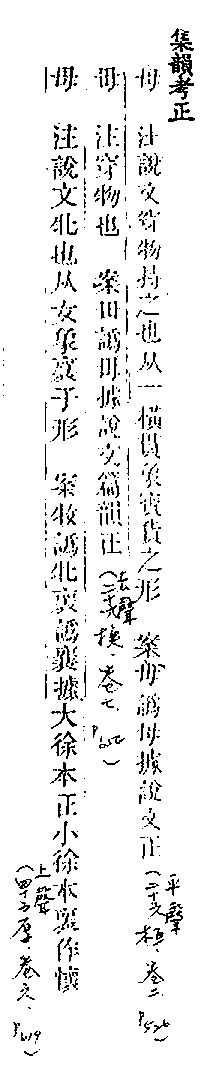 集韻考正
毌 注說文穿物持之也从一橫貫象寶貨之形 案毌譌母據說文正(平聲 二十六桓．卷二．P526)
毌 注穿物也 案田譌毋據說文篇韻正(去聲 換．卷七．)
母 注說文牝也从女象褱子形 案牧譌牝褱譌襄據大徐本正小徐本褱作懷(上聲 四十五厚．卷六．P619)